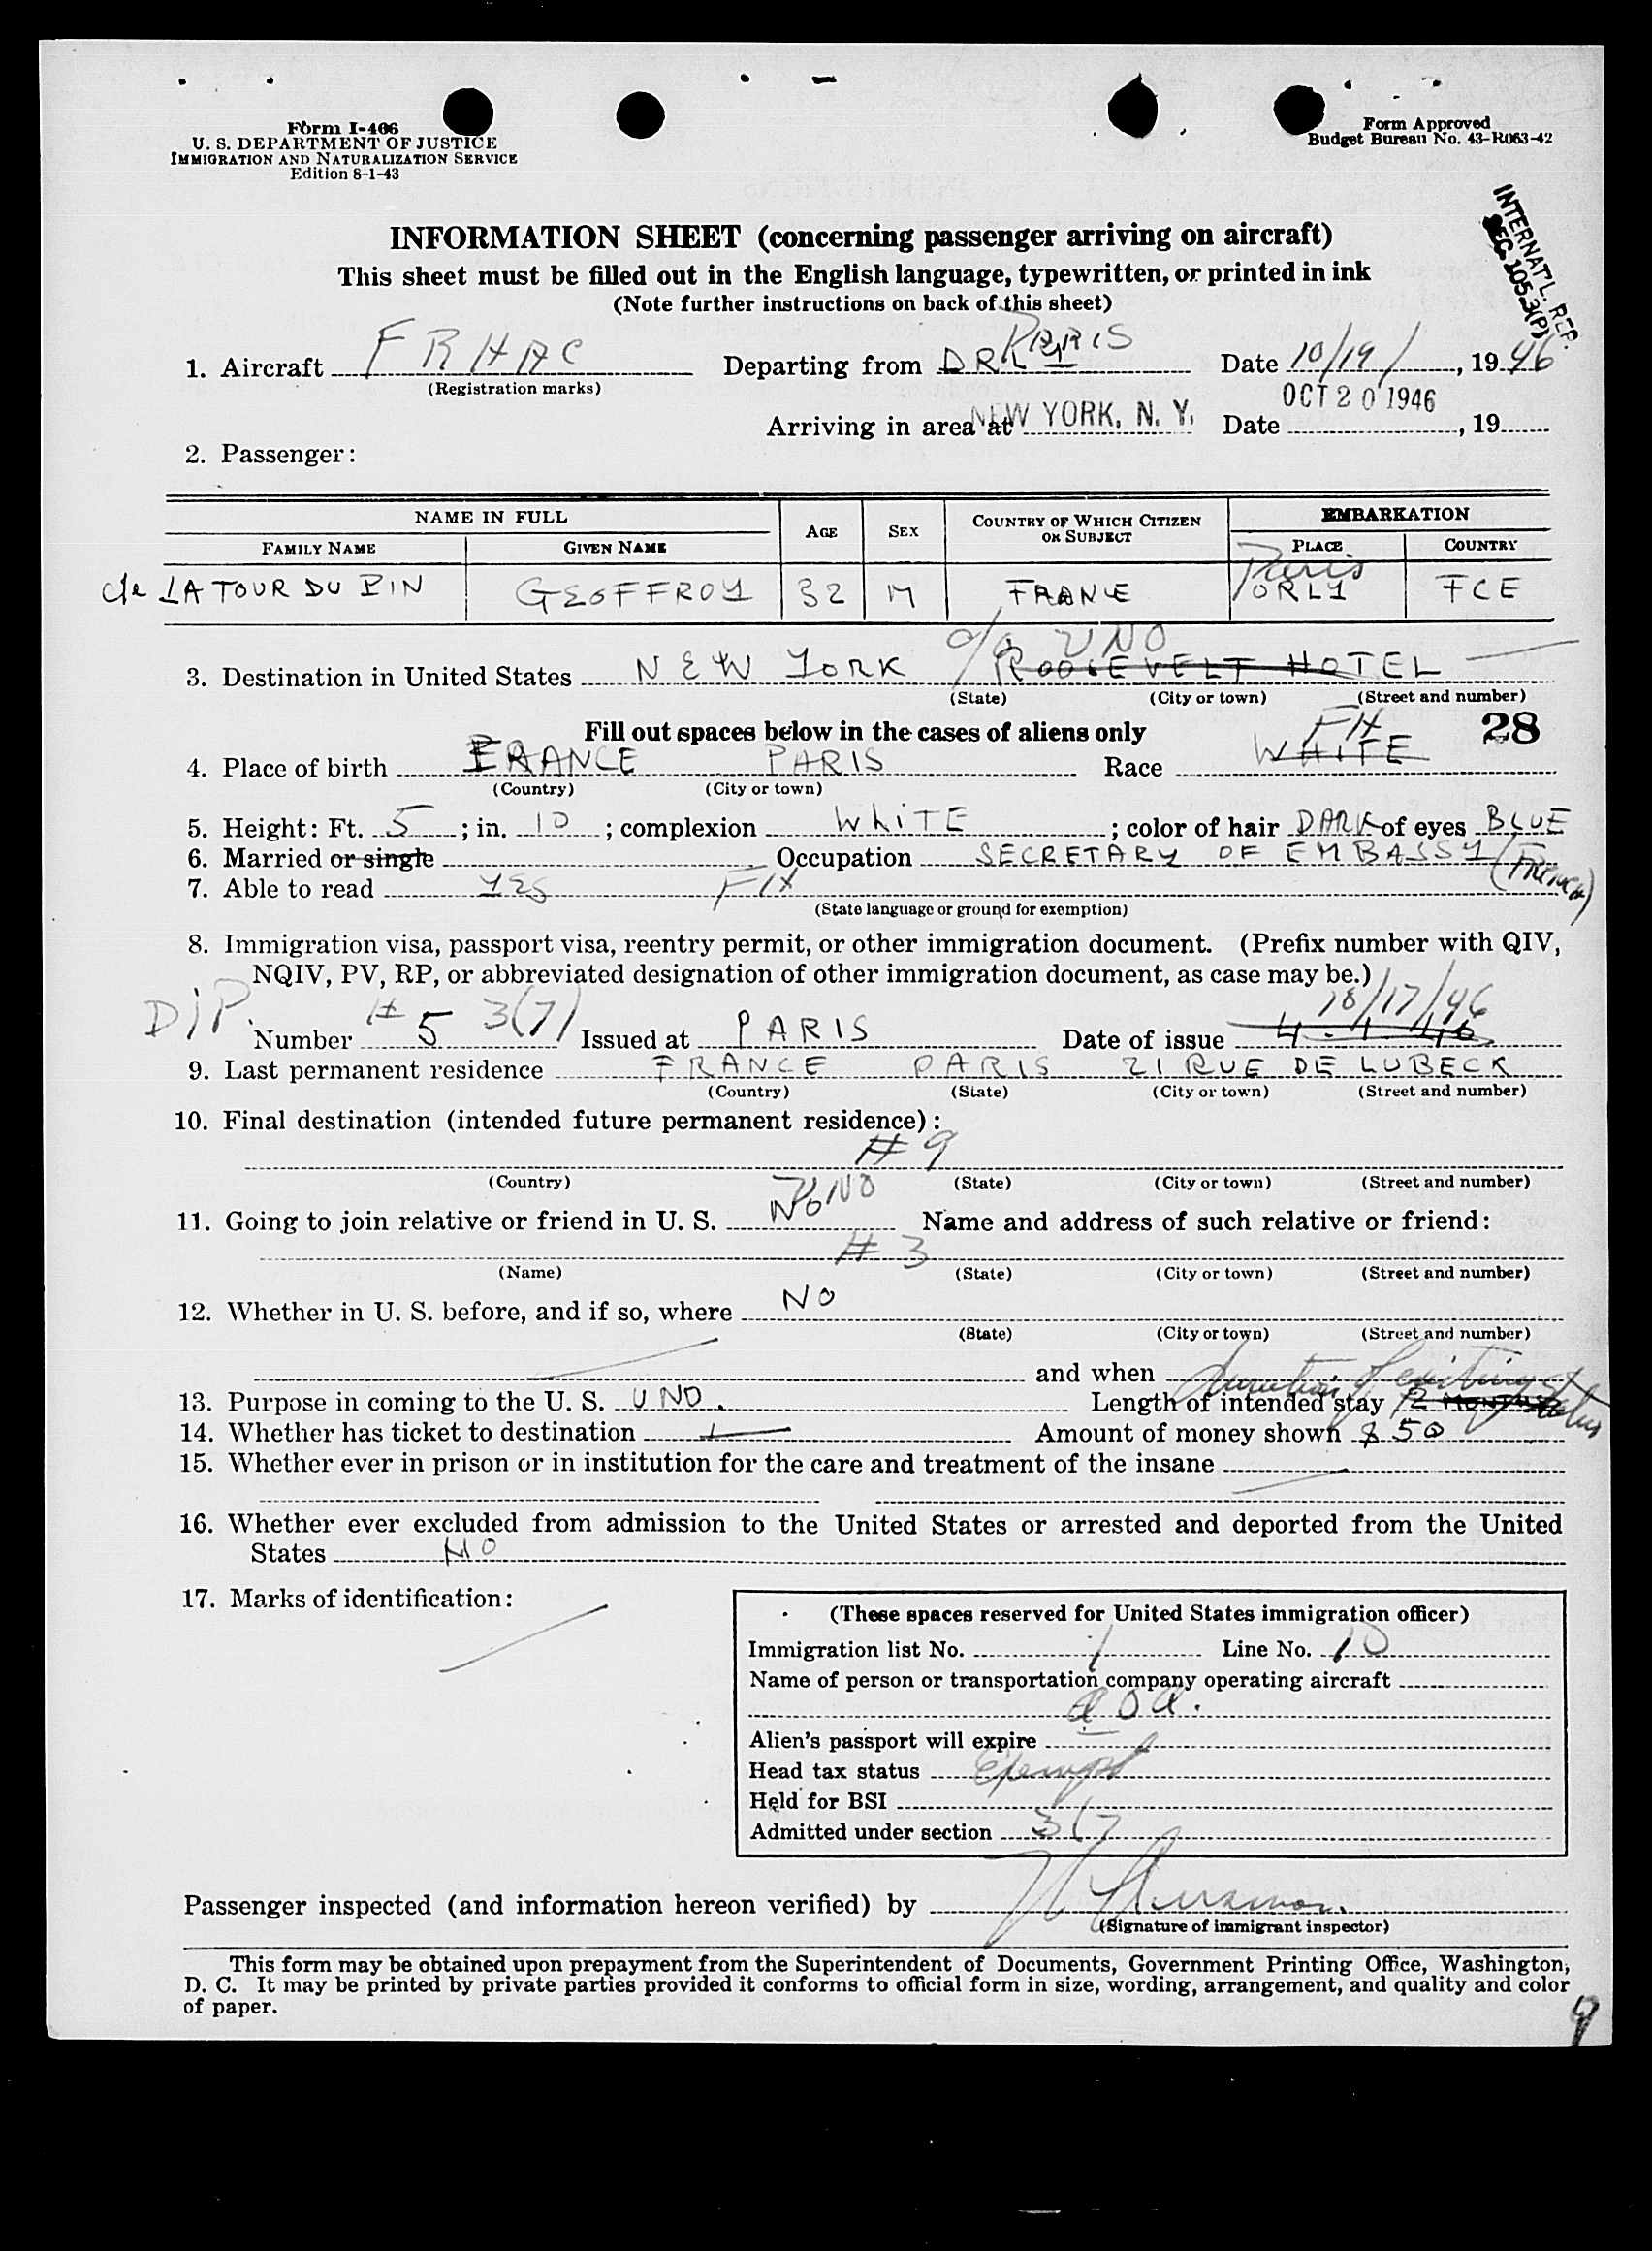 Form I-466
U. S. DEPARTMENT OF JUSTICE
IMMIGRATION AND NATURALIZATION SERVICE
Edition 8-1-43
Form Approved
Budget Bureau No. 43-R063-42
INTERNATL. REP.
SEC. 105.3(P)
INFORMATION SHEET (concerning passenger arriving on aircraft)
This sheet must be filled out in the English language, typewritten, or printed in ink
(Note further instructions on back of this sheet)
1. Aircraft F R HAC Departing from PARIS Date 10/19/, 1946
(Registration marks)
Arriving in area at NEW YORK, N. Y. Date OCT 20 1946, 19
2. Passenger:
NAME IN FULL AGE SEX COUNTRY OF WHICH CITIZEN OR SUBJECT EMBARKATION
FAMILY NAME GIVEN NAME PLACE COUNTRY
de LA TOUR DU PIN GEOFFROY 32 M FRANCE Paris ORLY FCE
c/o UNO
3. Destination in United States NEW YORK ROOSEVELT HOTEL
(State) (City or town) (Street and number)
Fill out spaces below in the cases of aliens only 28
4. Place of birth FRANCE PARIS Race WHITE FH
(Country) (City or town)
5. Height: Ft. 5; in. 10; complexion WHITE; color of hair DARK of eyes BLUE
6. Married or single Occupation SECRETARY OF EMBASSY (French)
7. Able to read YES
(State language or ground for exemption)
8. Immigration visa, passport visa, reentry permit, or other immigration document. (Prefix number with QIV,
NQIV, PV, RP, or abbreviated designation of other immigration document, as case may be.)
DIP. Number # 5 3(7) Issued at PARIS Date of issue 4-1-46 10/17/46
9. Last permanent residence FRANCE PARIS 21 RUE DE LUBECK
(Country) (State) (City or town) (Street and number)
10. Final destination (intended future permanent residence):
# 9
(Country) (State) (City or town) (Street and number)
11. Going to join relative or friend in U. S. NO UNO Name and address of such relative or friend:
# 3
(Name) (State) (City or town) (Street and number)
12. Whether in U. S. before, and if so, where NO
(State) (City or town) (Street and number)
and when
13. Purpose in coming to the U. S. UNO. Length of intended stay Duration of existing status
14. Whether has ticket to destination Amount of money shown $ 50
15. Whether ever in prison or in institution for the care and treatment of the insane
16. Whether ever excluded from admission to the United States or arrested and deported from the United
States NO
17. Marks of identification:
(These spaces reserved for United States immigration officer)
Immigration list No. 1 Line No. 10
Name of person or transportation company operating aircraft
a o a.
Alien's passport will expire
Head tax status Exempt
Held for BSI
Admitted under section 3(7
Passenger inspected (and information hereon verified) by
(Signature of immigrant inspector)
This form may be obtained upon prepayment from the Superintendent of Documents, Government Printing Office, Washington,
D. C. It may be printed by private parties provided it conforms to official form in size, wording, arrangement, and quality and color
of paper.
9